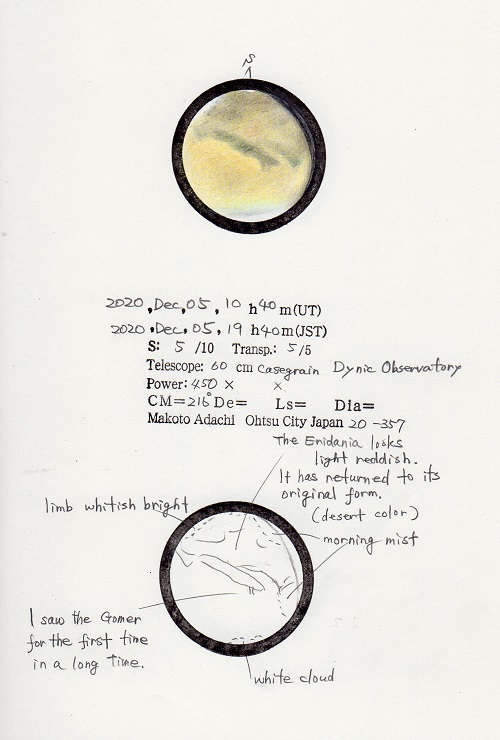 S
2020, Dec, 05, 10 h 40 m (UT)
2020, Dec, 05, 19 h 40 m (JST)
S: 5 /10 Transp.: 5/5
Telescope: 60 cm Casegrain Dynic Observatory
Power: 450 × ×
CM=216° De= Ls= Dia=
Makoto Adachi Ohtsu City Japan 20-357
The Eridania looks
light reddish.
It has returned to its
original form.
(desert color)
limb whitish bright
morning mist
I saw the Gomer
for the first time
in a long time.
white cloud